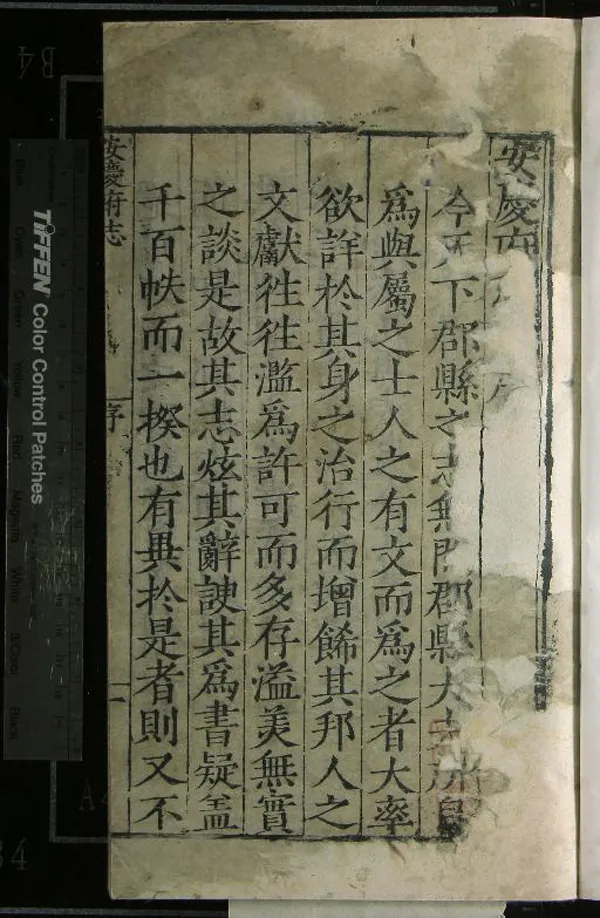 安慶府志序
今天下郡縣之志無
爲與屬之士人之有文而爲之者大率
欲詳於其身之治行而增餙其邦人之
文獻徃徃濫爲許可而多存溢美無實
之談是故其志炫其辭諛其爲書疑盖
千百帙而一揆也有異於是者則又不
安慶府志
序
一
TIFFEN Color Control Patches
Blue
Cyan
Green
Yellow
Red
Magenta
White
3/Color
Black
B4